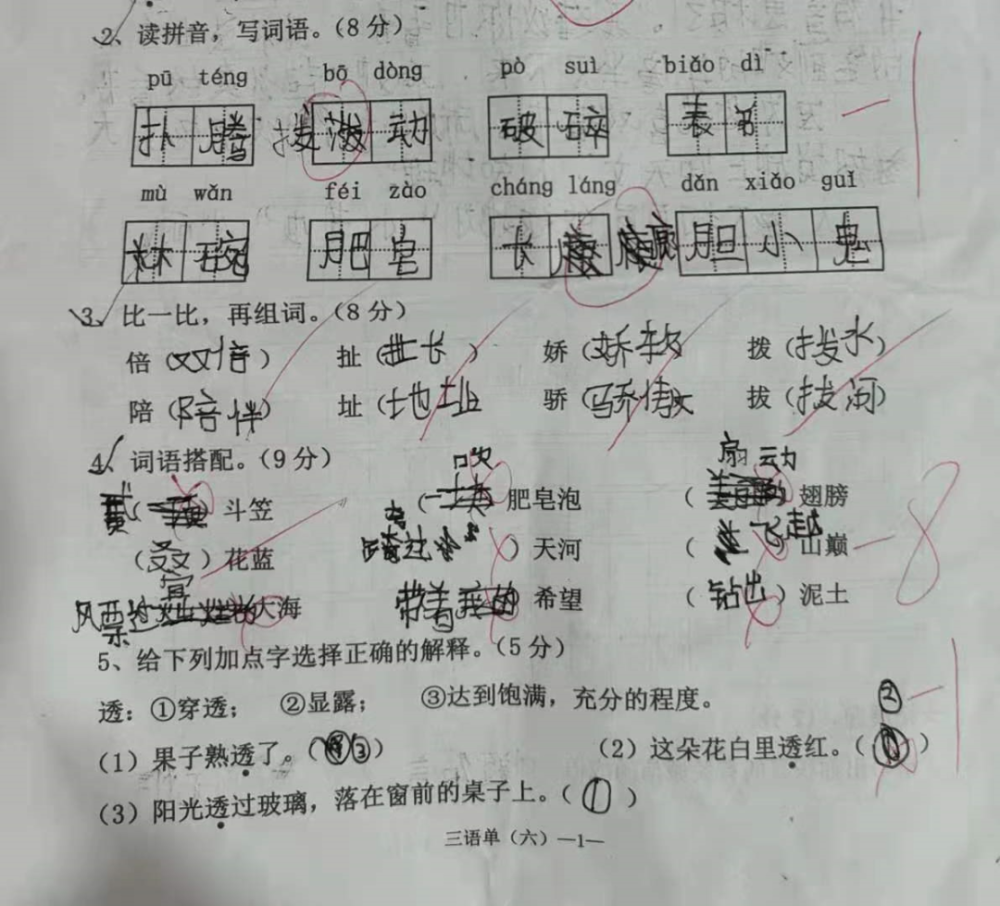 2、读拼音，写词语。(8分)
pū téng bō dòng pò suì biǎo dì
扑 腾 拨 泼 动 破 碎 表
mù wǎn féi zào cháng láng dǎn xiǎo guǐ
木 碗 肥 皂 长 廊 胆 小 鬼
3、比一比，再组词。(8分)
倍(双倍) 扯(扯长) 娇(娇) 拨(拨水)
陪(陪伴) 址(地址) 骄(骄傲) 拔(拔河)
4、词语搭配。(9分)
吹 扇动
戴( )斗笠 ( )肥皂泡 ( )翅膀
( )花蓝 过 )天河 ( 飞越 )山巅
飘过 大海 带着我的 希望 (钻出)泥土
5、给下列加点字选择正确的解释。(5分)
透：①穿透； ②显露； ③达到饱满，充分的程度。 ②
(1)果子熟透了。(③) (2)这朵花白里透红。( )
(3)阳光透过玻璃，落在窗前的桌子上。(①)
三语单（六）—1—
-1
-8
-1